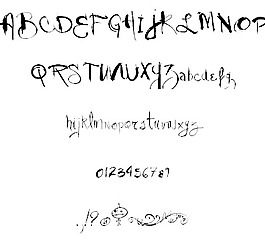 ABCDEFGHIJKLMNOP
QRSTUVWXYZabcdefg
hijklmnopqrstuvwxyz
0123456789
.,!?